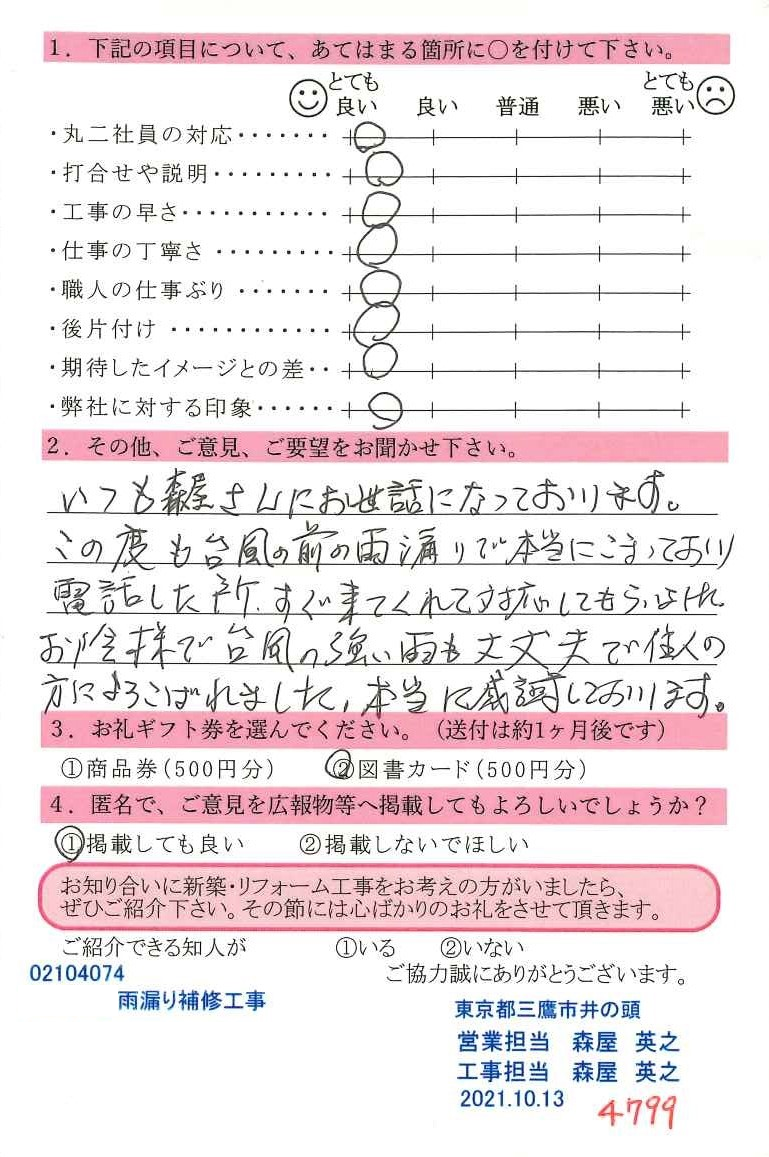 1．下記の項目について、あてはまる箇所に○を付けて下さい。
とても良い 良い 普通 悪い とても悪い
・丸二社員の対応・・・・・・・
・打合せや説明・・・・・・・・・
・工事の早さ・・・・・・・・・・・
・仕事の丁寧さ・・・・・・・・・
・職人の仕事ぶり・・・・・・・
・後片付け・・・・・・・・・・・・
・期待したイメージとの差・・
・弊社に対する印象・・・・・・
2．その他、ご意見、ご要望をお聞かせ下さい。
いつも森屋さんにお世話になっております。
この度も台風の前の雨漏りで本当にこまっており
電話した所、すぐ来てくれて対応してもらいました。
お陰様で台風の強い雨も大丈夫で住人の
方によろこばれました、本当に感謝しております。
3．お礼ギフト券を選んでください。（送付は約1ヶ月後です）
①商品券（500円分） ②図書カード（500円分）
4．匿名で、ご意見を広報物等へ掲載してもよろしいでしょうか？
①掲載しても良い ②掲載しないでほしい
お知り合いに新築・リフォーム工事をお考えの方がいましたら、
ぜひご紹介下さい。その節には心ばかりのお礼をさせて頂きます。
ご紹介できる知人が ①いる ②いない
02104074 ご協力誠にありがとうございます。
雨漏り補修工事
東京都三鷹市井の頭
営業担当 森屋 英之
工事担当 森屋 英之
2021.10.13
4799